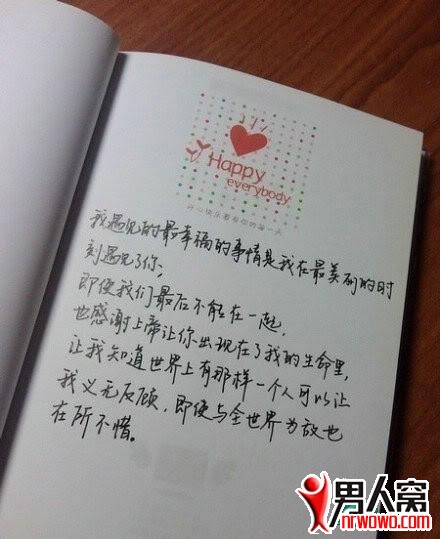 Happy
everybody
开心快乐着你的每一天
我遇见的最幸福的事情是我在最美丽的时
刻遇见了你,
即使我们最后不能在一起,
也感谢上帝让你出现在了我的生命里,
让我知道世界上有那样一个人可以让
我义无反顾,即使与全世界为敌也
在所不惜。
男人窝
nrwowo.com